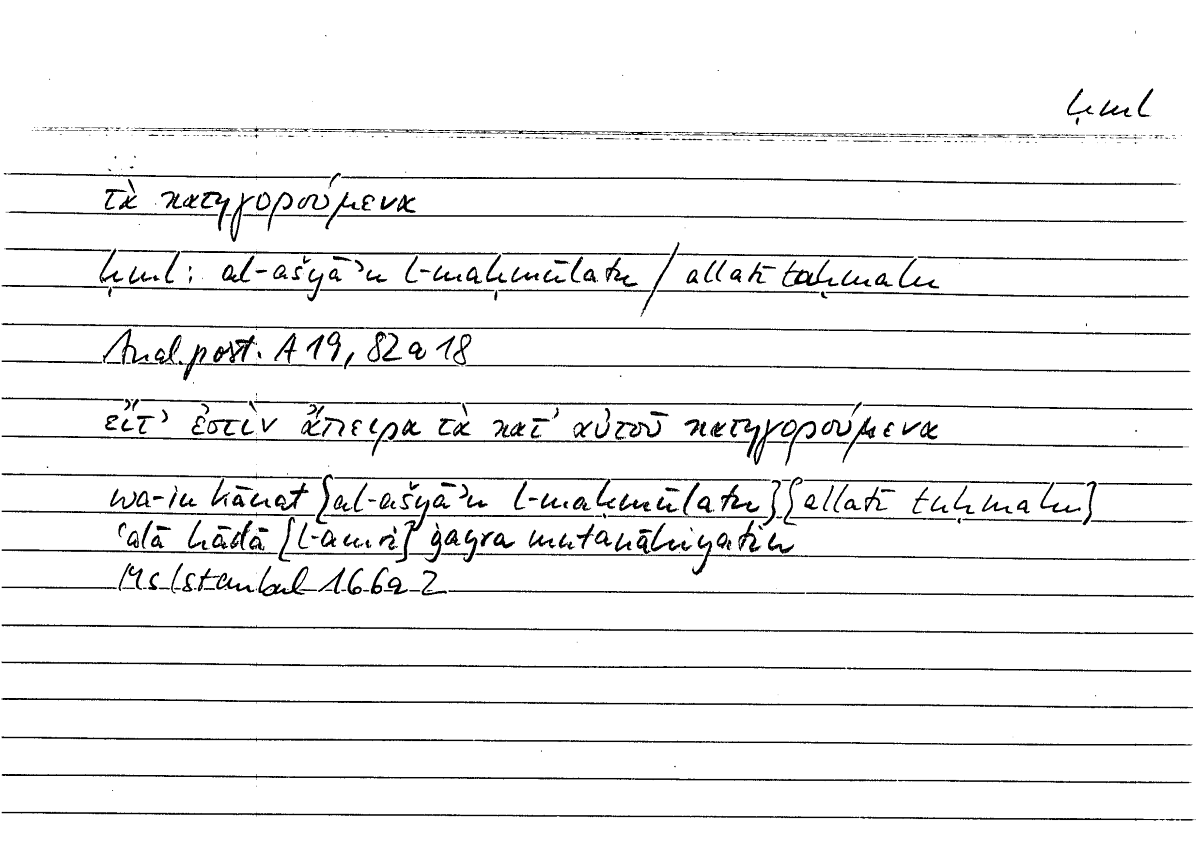 ḥml
τὰ κατηγορούμενα
ḥml: al-ašyāʾu l-maḥmūlatu / allatī tuḥmalu
Anal. post. A 19, 82 a 18
εἴτ' ἐστὶν ἄπειρα τὰ κατ' αὐτοῦ κατηγορούμενα
wa-in kānat [al-ašyāʾu l-maḥmūlatu] [allatī tuḥmalu]
ʿalā hāḏā [l-amri] ġayra mutanāhiyatin
Ms Istanbul 166a 2